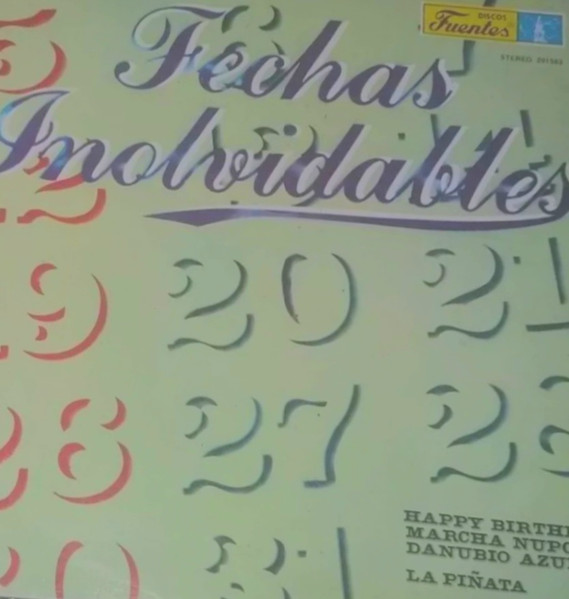 DISCOS
Fuentes
STEREO
Fechas
Inolvidables
19 20 21
26 27
HAPPY BIRTH
MARCHA NUPC
DANUBIO AZU
LA PIÑATA